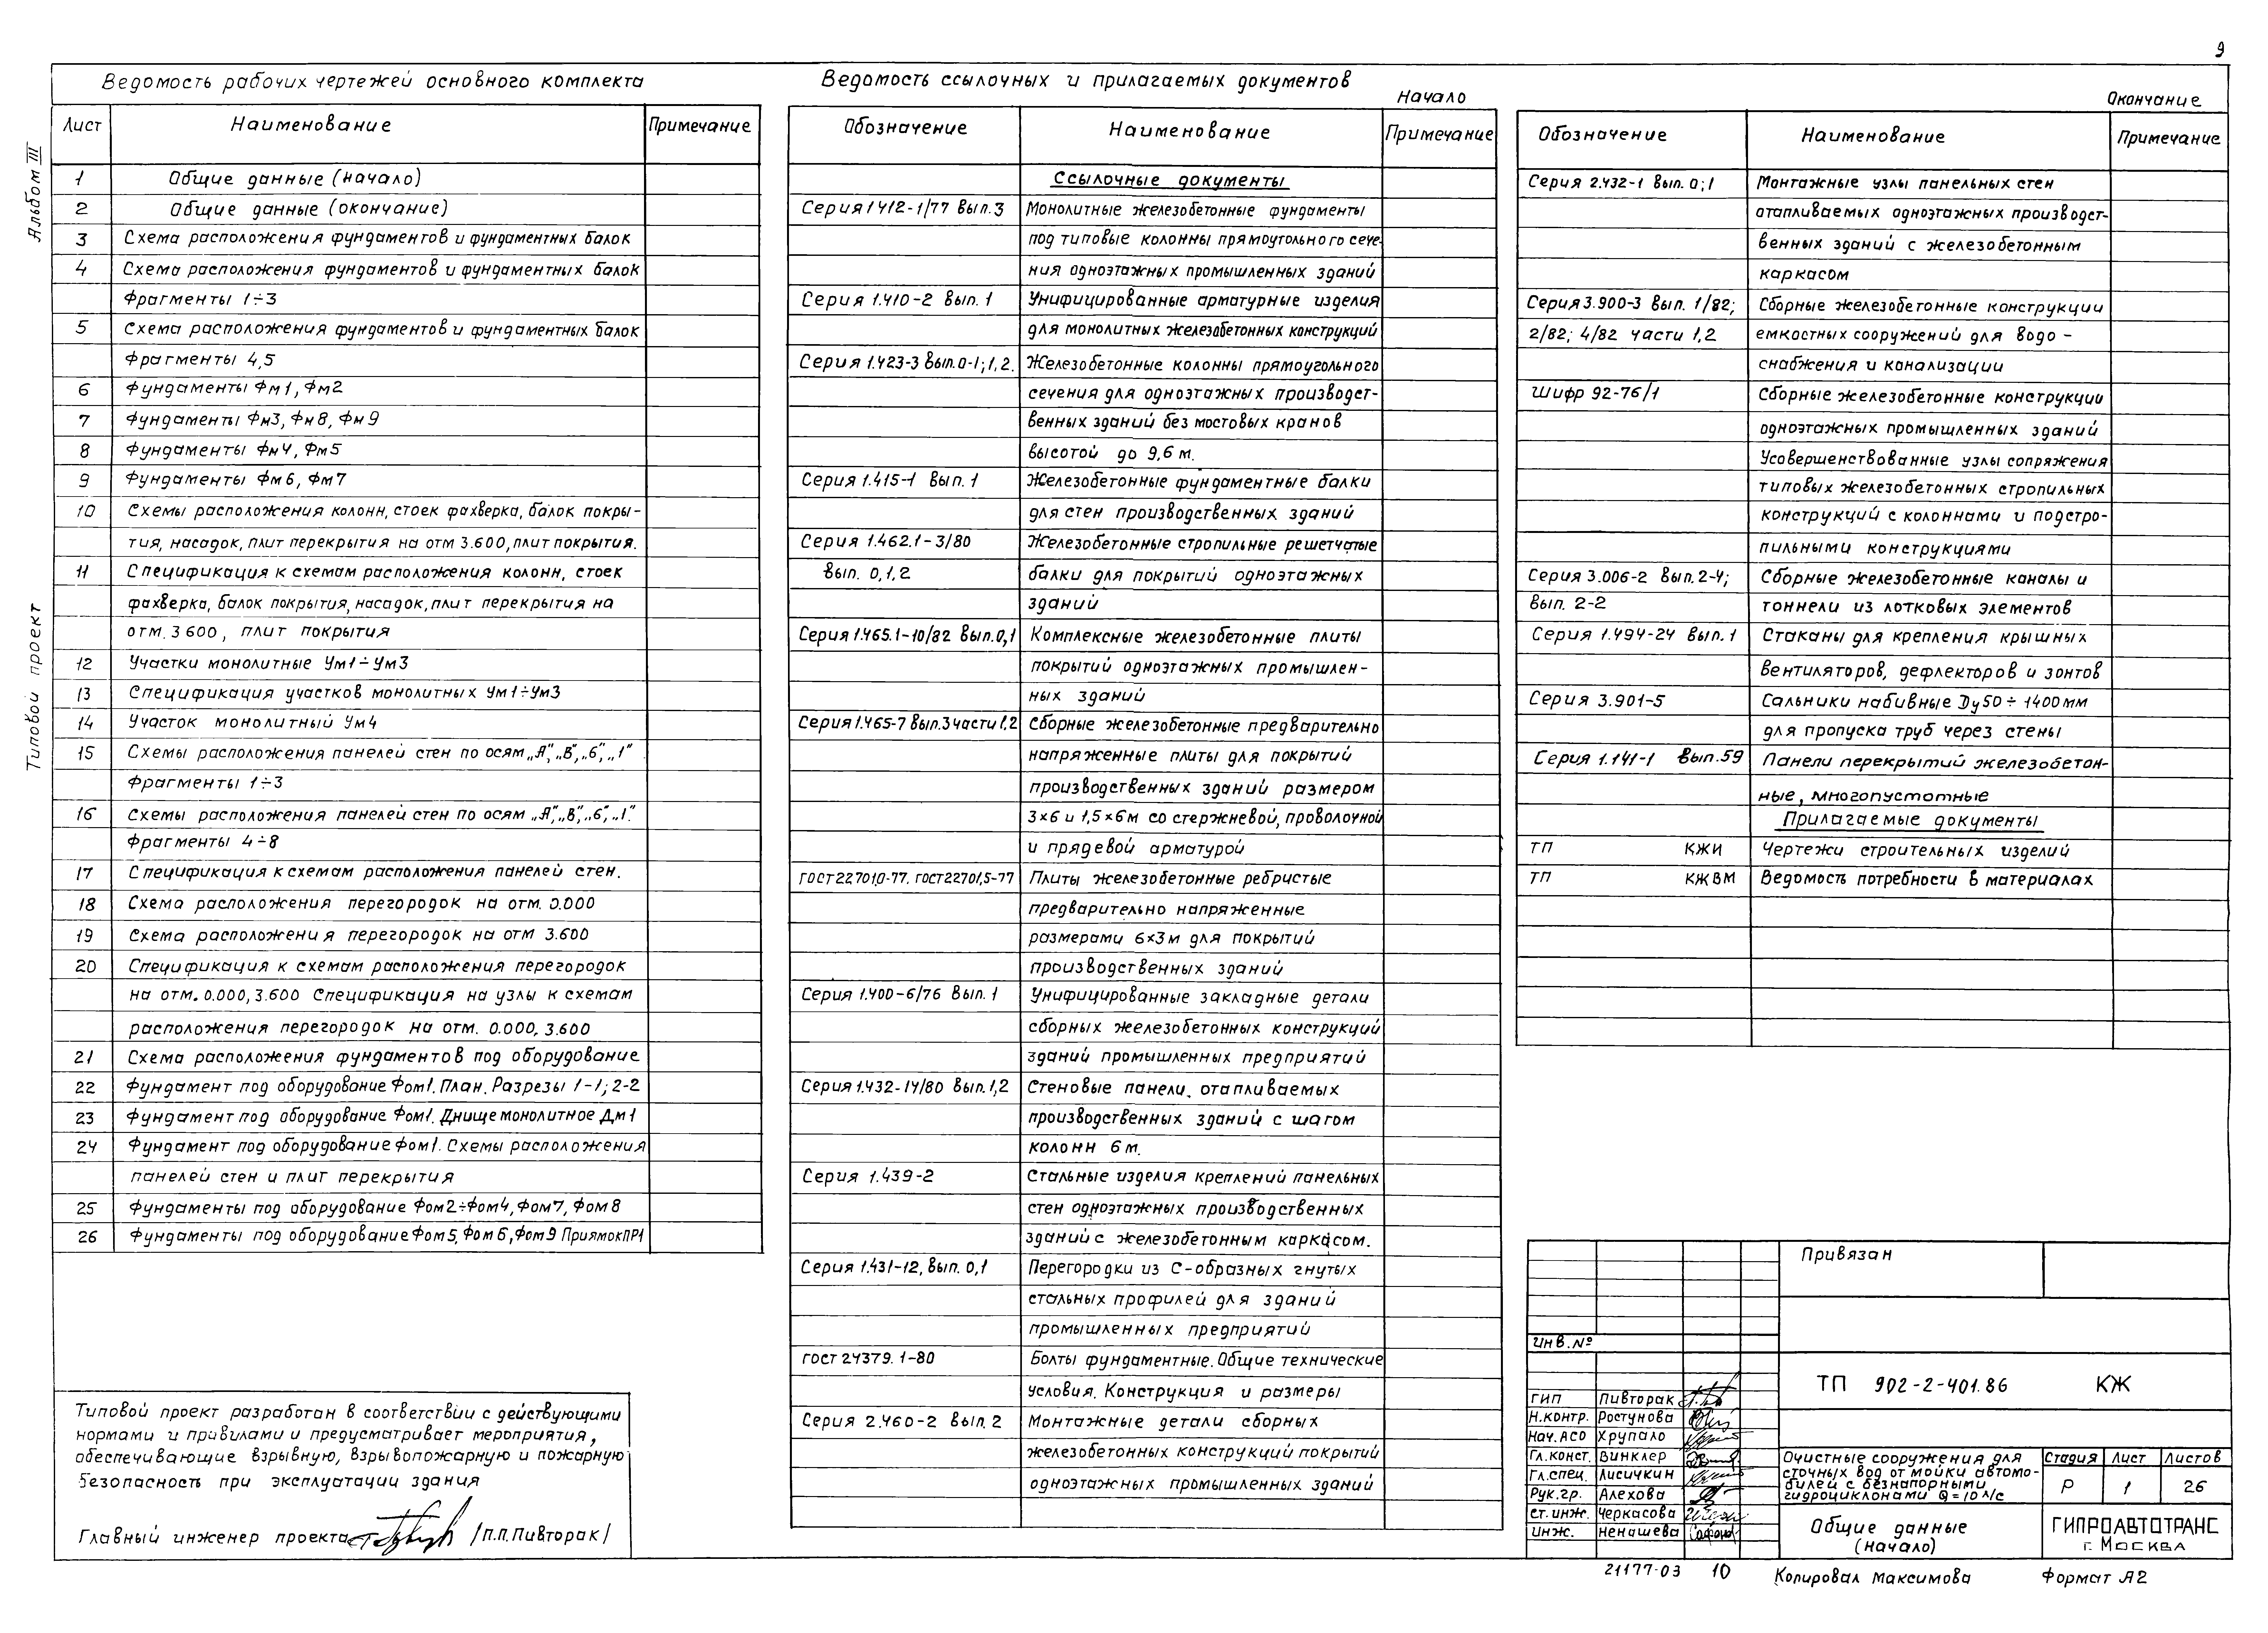 9
Альбом III
Типовой проект
Ведомость рабочих чертежей основного комплекта
Лист Наименование Примечание
1 Общие данные (начало)
2 Общие данные (окончание)
3 Схема расположения фундаментов и фундаментных балок
4 Схема расположения фундаментов и фундаментных балок
Фрагменты 1÷3
5 Схема расположения фундаментов и фундаментных балок
Фрагменты 4,5
6 Фундаменты Фм1, Фм2
7 Фундаменты Фм3, Фм8, Фм9
8 Фундаменты Фм4, Фм5
9 Фундаменты Фм6, Фм7
10 Схемы расположения колонн, стоек фахверка, балок покры-
тия, насадок, плит перекрытия на отм 3.600, плит покрытия.
11 Спецификация к схемам расположения колонн, стоек
фахверка, балок покрытия, насадок, плит перекрытия на
отм. 3 600, плит покрытия
12 Участки монолитные Ум1÷Ум3
13 Спецификация участков монолитных Ум1÷Ум3
14 Участок монолитный Ум4
15 Схемы расположения панелей стен по осям „А”, „В”, „6”, „1”
Фрагменты 1÷3
16 Схемы расположения панелей стен по осям „А”, „В”, „6”, „1”.
Фрагменты 4÷8
17 Спецификация к схемам расположения панелей стен.
18 Схема расположения перегородок на отм. 0.000
19 Схема расположения перегородок на отм 3.600
20 Спецификация к схемам расположения перегородок
на отм. 0.000, 3.600 Спецификация на узлы к схемам
расположения перегородок на отм. 0.000, 3.600
21 Схема расположения фундаментов под оборудование
22 Фундамент под оборудование Фом1. План. Разрезы 1-1; 2-2
23 Фундамент под оборудование Фом1. Днище монолитное Дм1
24 Фундамент под оборудование Фом1. Схемы расположения
панелей стен и плит перекрытия
25 Фундаменты под оборудование Фом2÷Фом4, Фом7, Фом8
26 Фундаменты под оборудование Фом5, Фом6, Фом9 Приямок ПР1
Типовой проект разработан в соответствии с действующими
нормами и правилами и предусматривает мероприятия,
обеспечивающие взрывную, взрывопожарную и пожарную
безопасность при эксплуатации здания
Главный инженер проекта /П.П.Пивторак/
Ведомость ссылочных и прилагаемых документов
Начало
Обозначение Наименование Примечание
Ссылочные документы
Серия 1 412-1/77 Вып. 3 Монолитные железобетонные фундаменты
под типовые колонны прямоугольного сече-
ния одноэтажных промышленных зданий
Серия 1.410-2 Вып. 1 Унифицированные арматурные изделия
для монолитных железобетонных конструкций
Серия 1.423-3 Вып. 0-1; 1,2. Железобетонные колонны прямоугольного
сечения для одноэтажных производст-
венных зданий без мостовых кранов
высотой до 9,6 м.
Серия 1.415-1 Вып. 1 Железобетонные фундаментные балки
для стен производственных зданий
Серия 1.462.1-3/80 Железобетонные стропильные решетчатые
Вып. 0,1,2 балки для покрытий одноэтажных
зданий
Серия 1.465.1-10/82 Вып. 0,1 Комплексные железобетонные плиты
покрытий одноэтажных промышлен-
ных зданий
Серия 1.465-7 Вып. 3 части 1,2 Сборные железобетонные предварительно
напряженные плиты для покрытий
производственных зданий размером
3×6 и 1,5×6м со стержневой, проволочной
и прядевой арматурой
ГОСТ 22701.0-77. ГОСТ 22701,5-77 Плиты железобетонные ребристые
предварительно напряженные
размерами 6×3 м для покрытий
производственных зданий
Серия 1.400-6/76 Вып. 1 Унифицированные закладные детали
сборных железобетонных конструкций
зданий промышленных предприятий
Серия 1.432-14/80 Вып. 1,2 Стеновые панели, отапливаемых
производственных зданий с шагом
колонн 6 м.
Серия 1.439-2 Стальные изделия креплений панельных
стен одноэтажных производственных
зданий с железобетонным каркасом.
Серия 1.431-12, Вып. 0,1 Перегородки из С-образных гнутых
стальных профилей для зданий
промышленных предприятий
ГОСТ 24379.1-80 Болты фундаментные. Общие технические
условия. Конструкция и размеры
Серия 2.460-2 Вып. 2 Монтажные детали сборных
железобетонных конструкций покрытий
одноэтажных промышленных зданий
Окончание
Обозначение Наименование Примечание
Серия 2.432-1 Вып. 0; 1 Монтажные узлы панельных стен
отапливаемых одноэтажных производст-
венных зданий с железобетонным
каркасом
Серия 3.900-3 Вып. 1/82; Сборные железобетонные конструкции
2/82; 4/82 части 1,2 емкостных сооружений для водо-
снабжения и канализации
Шифр 92-76/1 Сборные железобетонные конструкции
одноэтажных промышленных зданий
Усовершенствованные узлы сопряжения
типовых железобетонных стропильных
конструкций с колоннами и подстро-
пильными конструкциями
Серия 3.006-2 Вып. 2-4; Сборные железобетонные каналы и
Вып. 2-2 тоннели из лотковых элементов
Серия 1.494-24 Вып. 1 Стаканы для крепления крышных
вентиляторов, дефлекторов и зонтов
Серия 3.901-5 Сальники набивные Dу50÷1400 мм
для пропуска труб через стены
Серия 1.141-1 Вып. 59 Панели перекрытий железобетон-
ные, многопустотные
Прилагаемые документы
ТП КЖИ Чертежи строительных изделий
ТП КЖВМ Ведомость потребности в материалах
Привязан
ИНВ. №
ТП 902-2-401.86 КЖ
ГИП Пивторак
Н.контр. Ростунова
Нач. АСО Хрупало
Гл.конст. Винклер
Гл.спец. Лисичкин
Рук.гр. Алехова
Ст.инж. Черкасова
Инж. Ненашева
Очистные сооружения для
сточных вод от мойки автомо-
билей с безнапорными
гидроциклонами Q=10 л/с
Стадия Лист Листов
Р 1 26
Общие данные
(начало)
ГИПРОАВТОТРАНС
г. Москва
21177-03 10 Копировал Максимова Формат А2